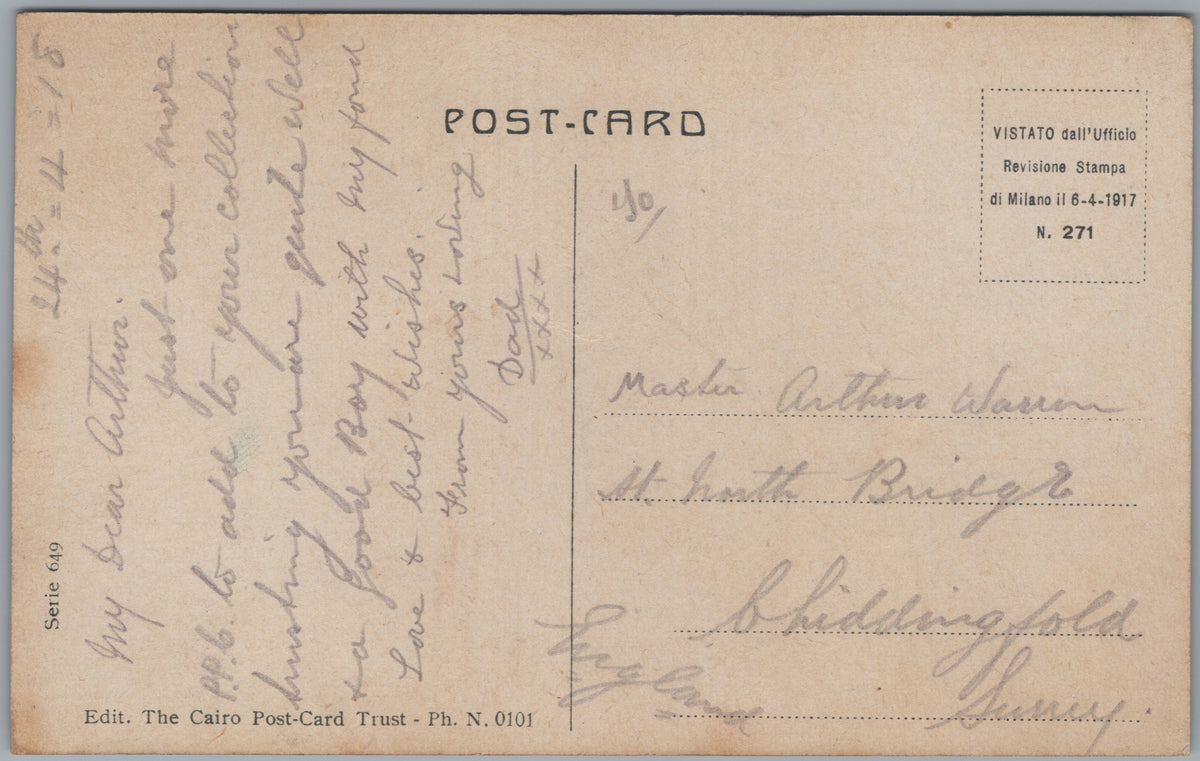 POST-CARD
VISTATO dall'Ufficio
Revisione Stampa
di Milano il 6-4-1917
N. 271
24th = 4 = 18
My Dear Arthur.
Just one more
P.P.C. to add to your collection
trusting you are quite well
& a good Boy with my fond
Love & best Wishes.
From yours Loving
Dad
xxxx
Master Arthur Warren
Nt. North Bridge
Chiddingfold
Surrey.
England
Serie 649
Edit. The Cairo Post-Card Trust - Ph. N. 0101